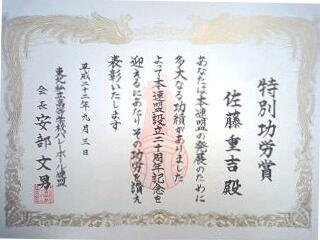 特別功労賞
佐藤重吉殿
あなたは本連盟の発展のために
多大なる功績がありました
よって本連盟設立二十周年記念を
迎えるにあたりその功労を讃え
表彰いたします
平成二十二年九月三日
東北私立高等学校バレーボール連盟
会長 安部文男